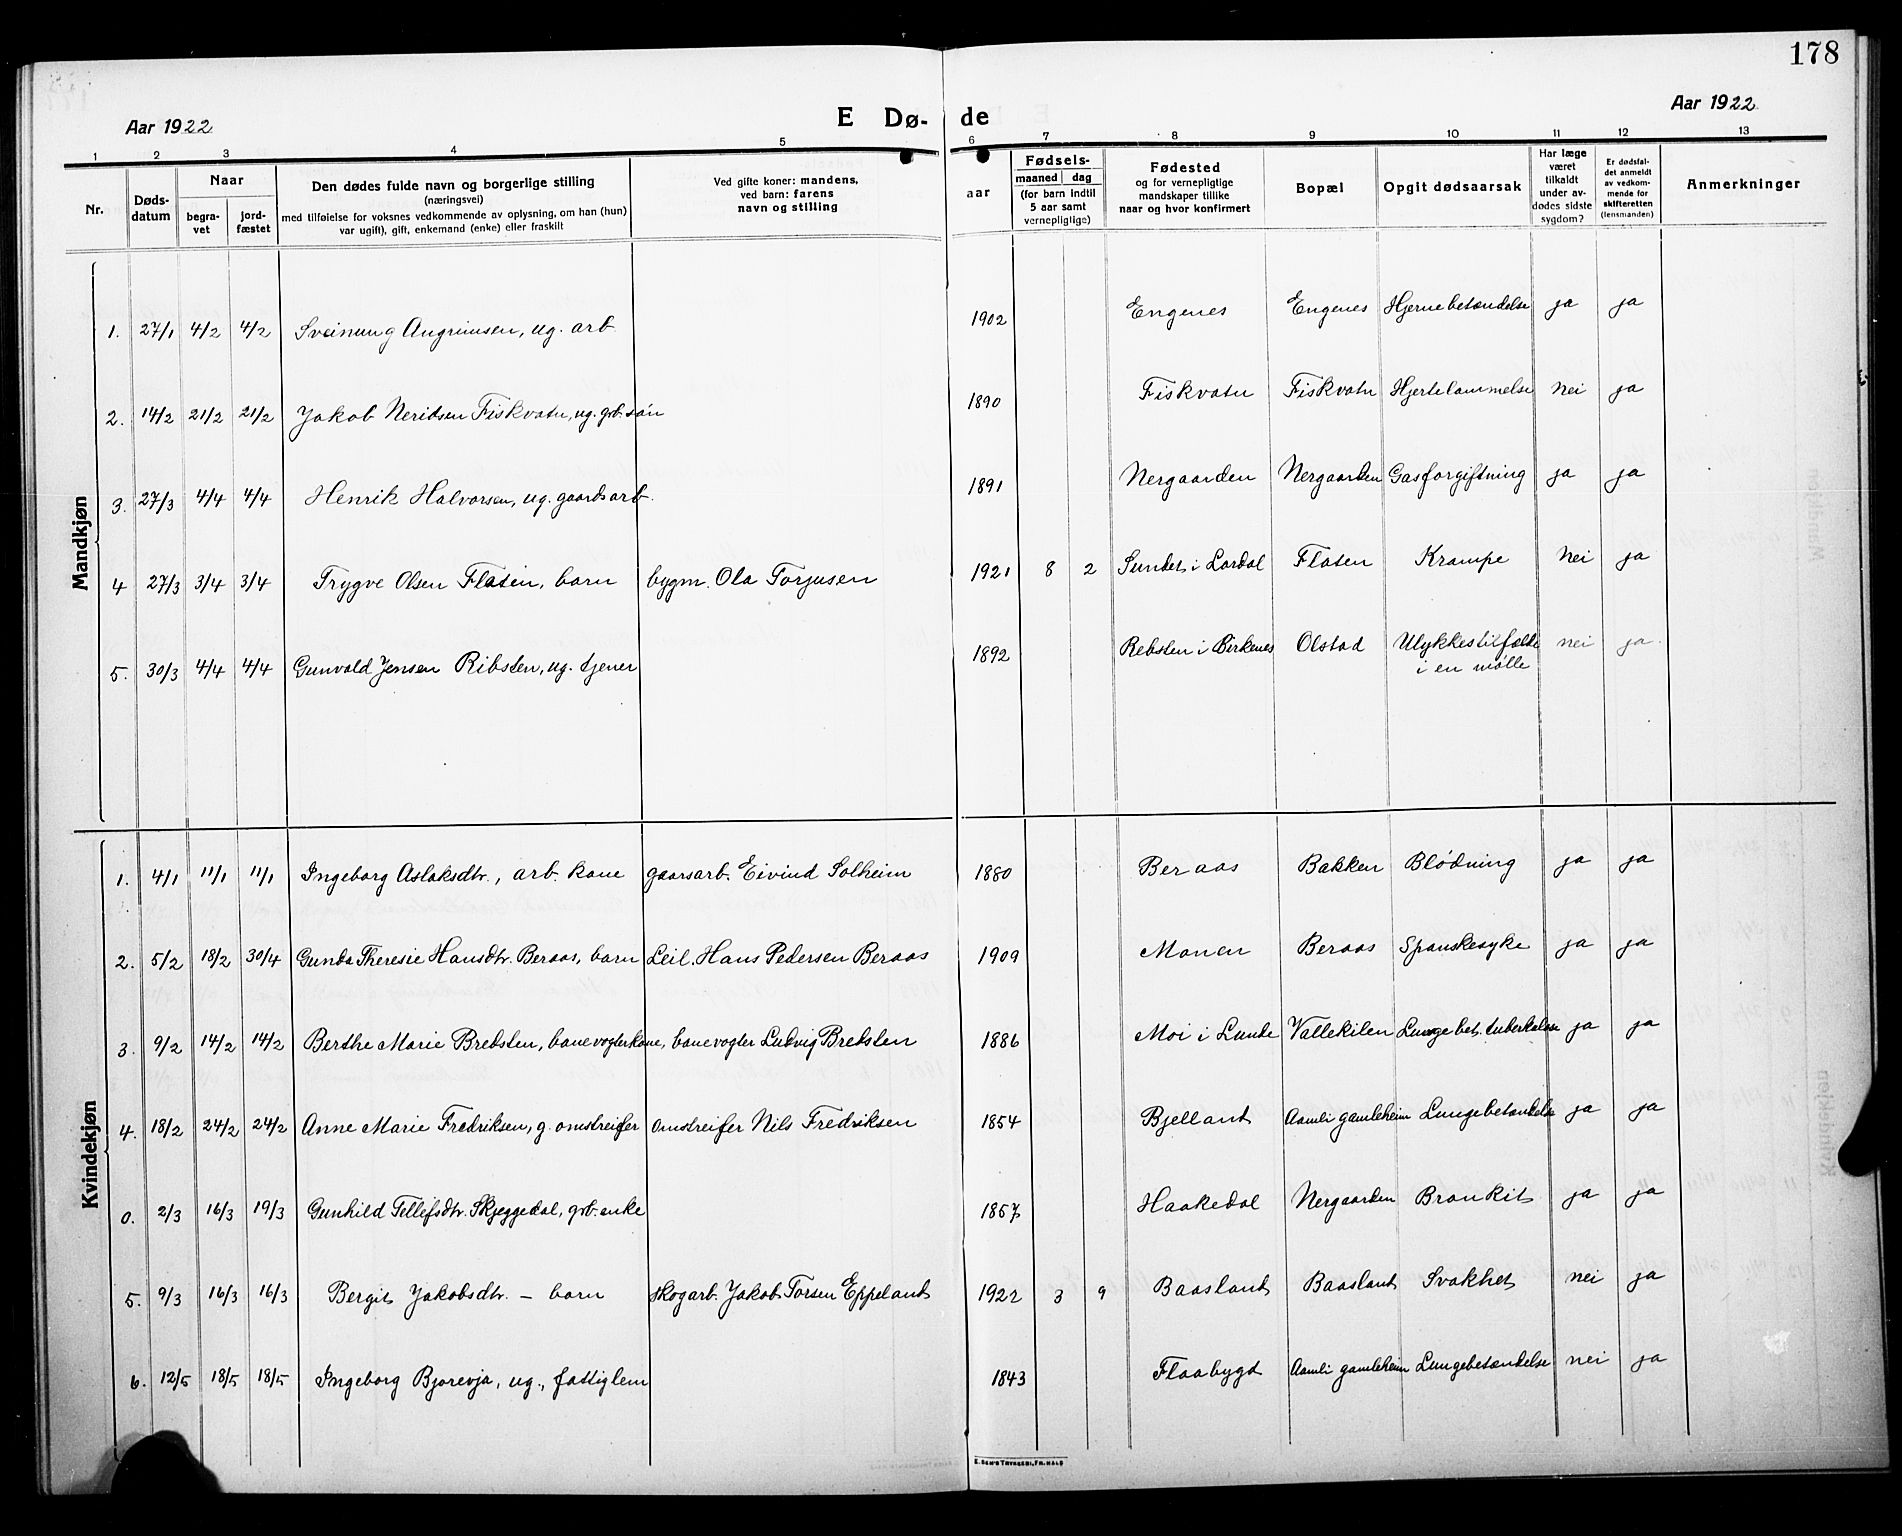 178
Aar 1922
E Dø-de
Aar 1922
1 2 3 4 5 6 7 8 9 10 11 12 13
Nr.
Døds-datum
Naar
begra-vet
jord-fæstet
Den dødes fulde navn og borgerlige stilling
(næringsvei)
med tilføielse for voksnes vedkommende av oplysning, om han (hun)
var ugift), gift, enkemand (enke) eller fraskilt
Ved gifte koner: mandens,
ved barn: farens
navn og stilling
Fødsels-
aar
maaned dag
(for barn indtil
5 aar samt
vernepligtige)
Fødested
og for vernepligtige
mandskaper tillike
naar og hvor konfirmert
Bopæl
Opgit dødsaarsak
Har læge
været
tilkaldt
under av-
dødes sidste
sygdom?
Er dødsfal-
det anmeldt
av vedkom-
mende for
skifteretten
(lensmanden)
Anmerkninger
Mandkjøn
1. 27/1 4/2 4/2 Sveinung Angrimsen, ug. arb. 1902 Engenes Engenes Hjernebetændelse ja ja
2. 14/2 21/2 21/2 Jakob Neridsen Fiskvatn, ug. grb. søn 1890 Fiskvatn Fiskvatn Hjertelammelse Nei ja
3. 27/3 4/4 4/4 Henrik Halvorsen, ug. gaardsarb. 1891 Nergaarden Nergaarden Gasforgiftning ja ja
4 27/3 3/4 3/4 Trygve Olsen Flaten, barn bygm. Ola Torjusen 1921 8 2 Sundet i Lardal Flaten Krampe Nei ja
5. 30/3 4/4 4/4 Gunvald Jensen Ribsten, ug. tjener 1892 Rebsten i Birkenes Olstad Ulykkestilfælde nei ja.
i en mølle
Kvindekjøn
1. 4/1 11/1 11/1 Ingeborg Aslaksdtr., arb. kone gaarsarb. Eivind Solheim 1880 Beraas Bakken Blødning ja ja
2. 5/2 18/2 30/4 Gunda Theresie Hansdtr. Beraas, barn Leil. Hans Pedersen Beraas 1909 Monen Beraas Spanskesyke ja ja
3. 9/2 14/2 14/2 Berthe Marie Bredsten, banevogterkone, banevogter Ludvig Bredsten 1886 Moi i Lunde Vallekilen Lungebet. tuberkulose ja ja
4. 18/2 24/2 24/2 Anne Marie Fredriksen, g. omstreifer omstreifer Nils Fredriksen 1854 Bjelland Aamli gamleheim Lungebetændelse ja ja
0. 2/3 16/3 19/3 Gunhild Tellefsdtr. Skjeggedal, grb. enke 1857 Haakedal Nergaarden Bronkit ja ja
5. 9/3 16/3 16/3 Bergit Jakobsdtr. – barn skogarb. Jakob Torsen Eppeland 1922 3 9 Baasland Baasland Svakhet nei ja
6. 12/5 18/5 18/5 Ingeborg Bjorevja, ug., fattiglem 1843 Flaabygd Aamli gamleheim Lungebetændelse nei ja